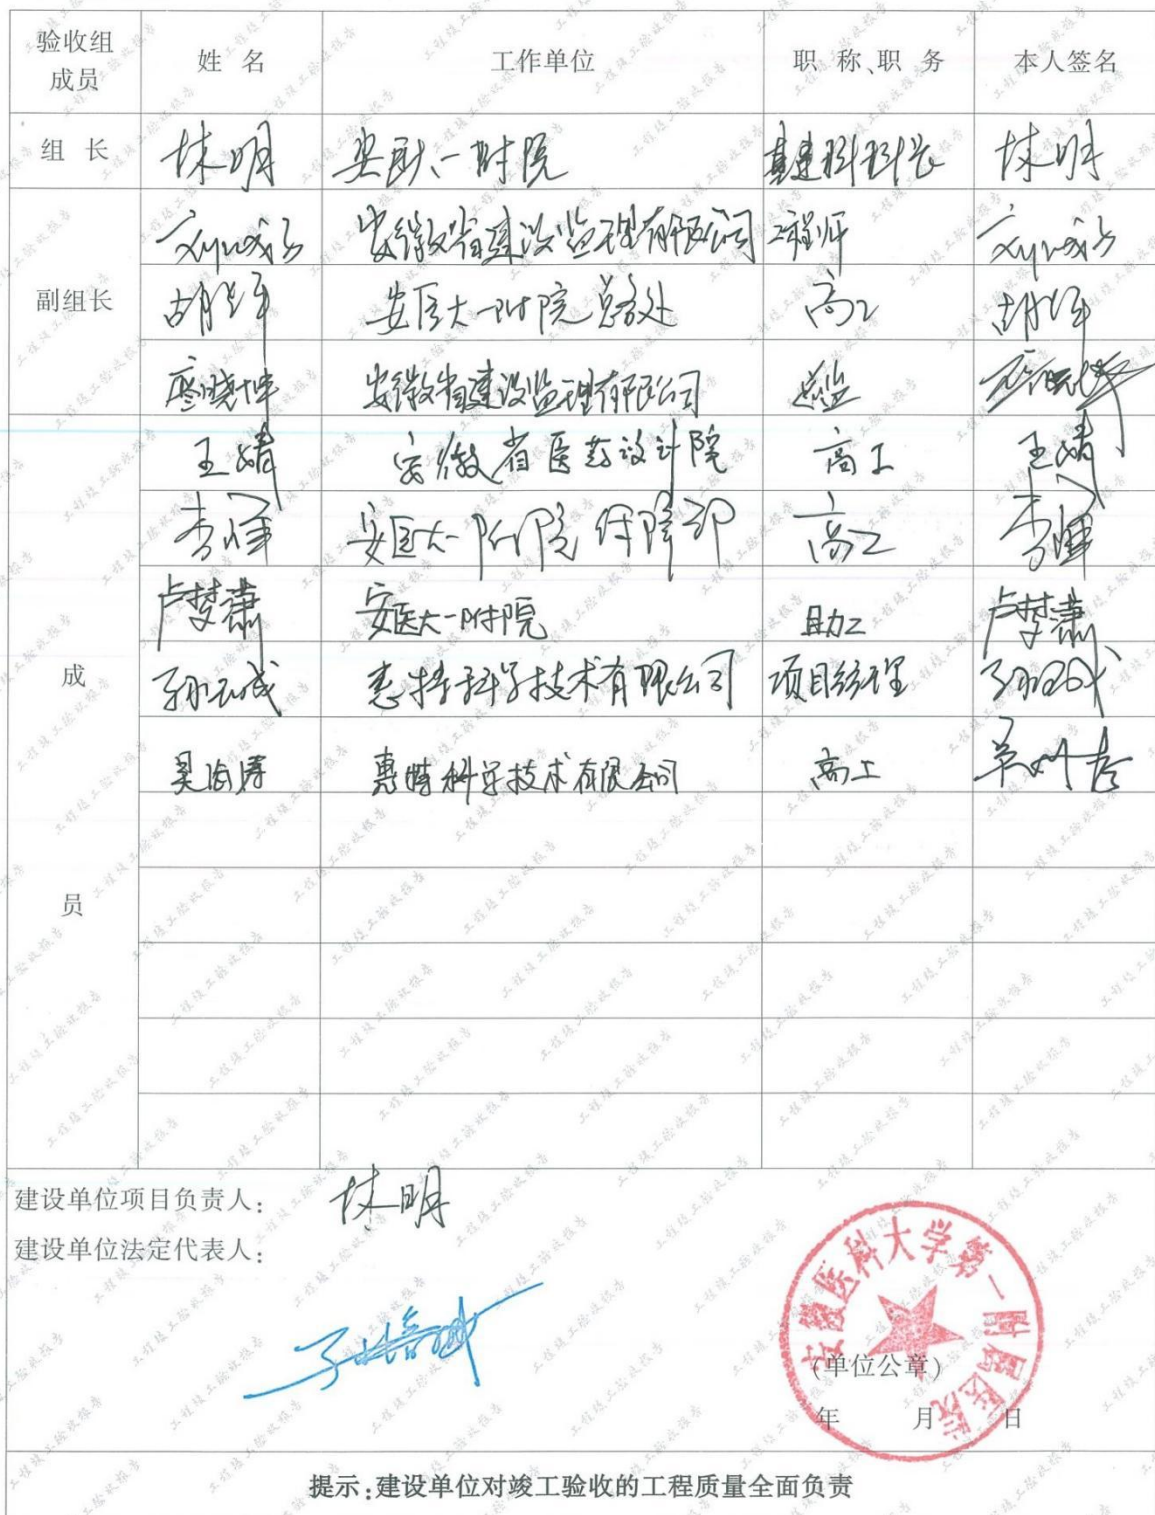 验收组成员 姓 名 工作单位 职 称、职 务 本人签名
组 长 林明 安医大一附院 基建科科长 林明
安徽省建设监理有限公司 工程师
副组长 安医大一附院总务处 高工
廖晓坤 安徽省建设监理有限公司 总监
王婧 安徽省医药设计院 高工 王婧
李辉 安医大一附院保障部 高工 李辉
卢梦萧 安医大一附院 助工 卢梦萧
成 惠特科学技术有限公司 项目经理
惠特科学技术有限公司 高工
员
建设单位项目负责人： 林明
建设单位法定代表人：
安徽医科大学第一附属医院
(单位公章)
年 月 日
提示：建设单位对竣工验收的工程质量全面负责